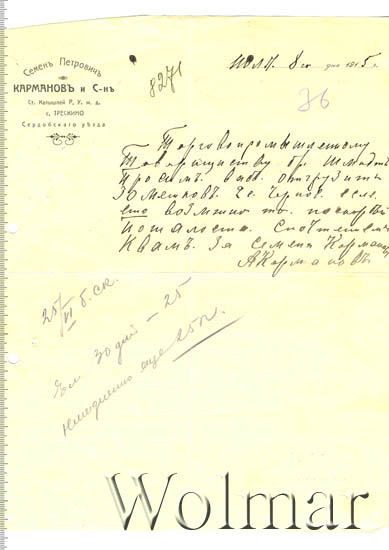 Семенъ Петровичъ
КАРМАНОВЪ и С-нъ
Ст. Колышлей Р. У. ж. д.
с. ТРЕСКИНО
Сердобскаго уѣзда
8271
Июля 8 го дня 1915 г.
76
Торговопромышленому
Товариществу бр. Шмидтъ
Просимъ васъ отгрузить
30 мешковъ 2 с. если
ето возможно то поскорѣй
Пожалоста. Спочтениемъ
Квамъ. За Семена Карманова
АКармановъ
25/VI б. ск.
30 дней – 25
немедленно еще 25 п.
Wolmar